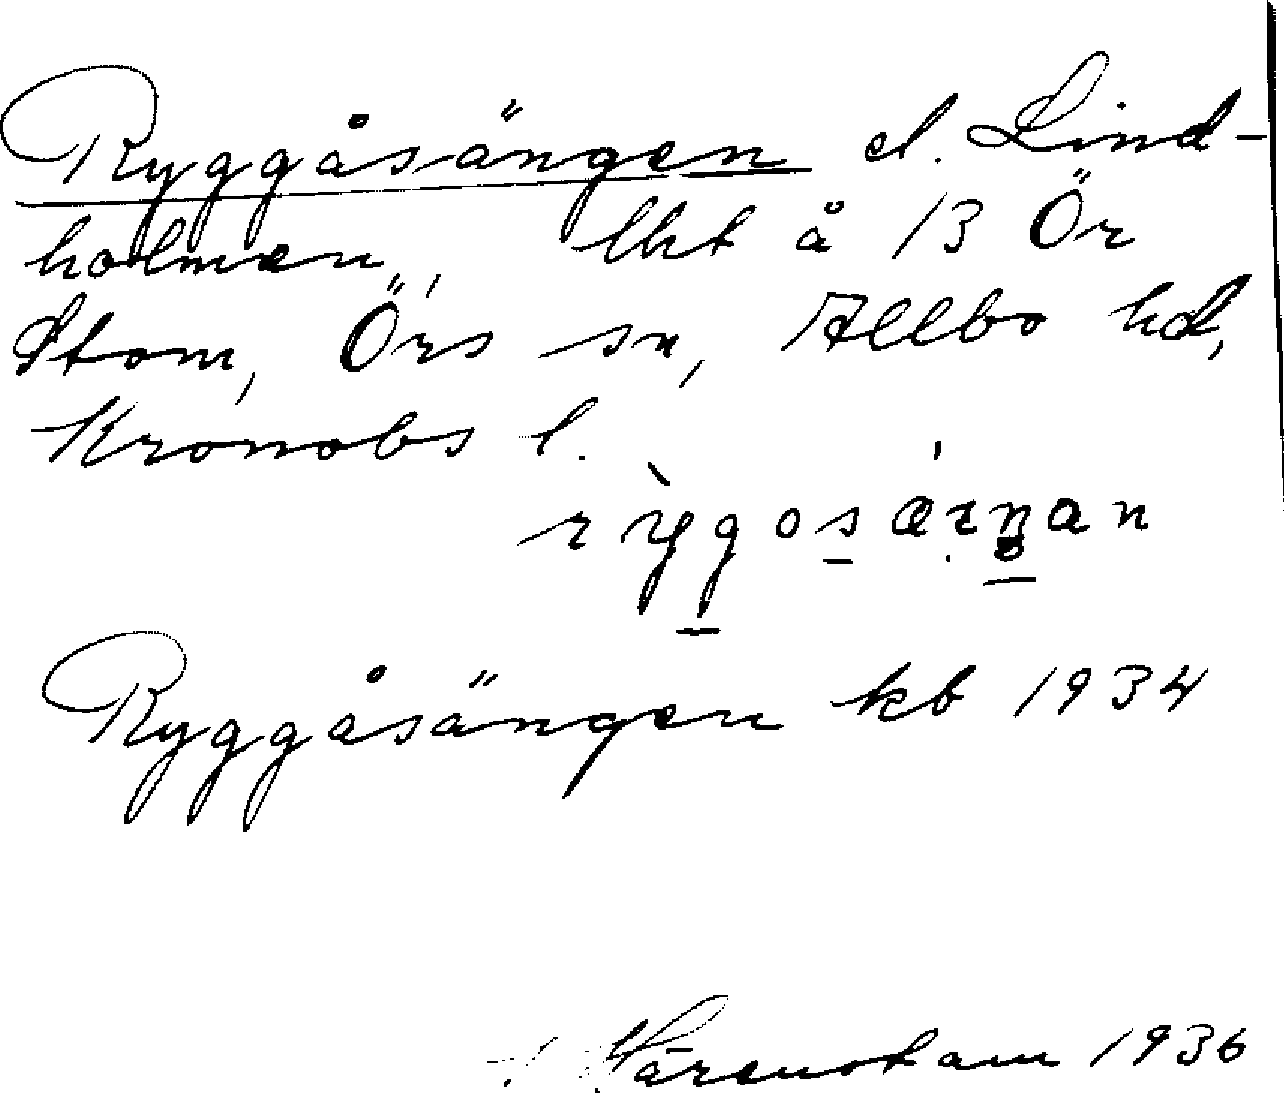 Ryggåsängen el. Lind-
holmen, lht å 13 Ör
Stom, Örs sn, Allbo hd,
Kronobs l.
Ryggåsängen kb 1934
Värenstam 1936